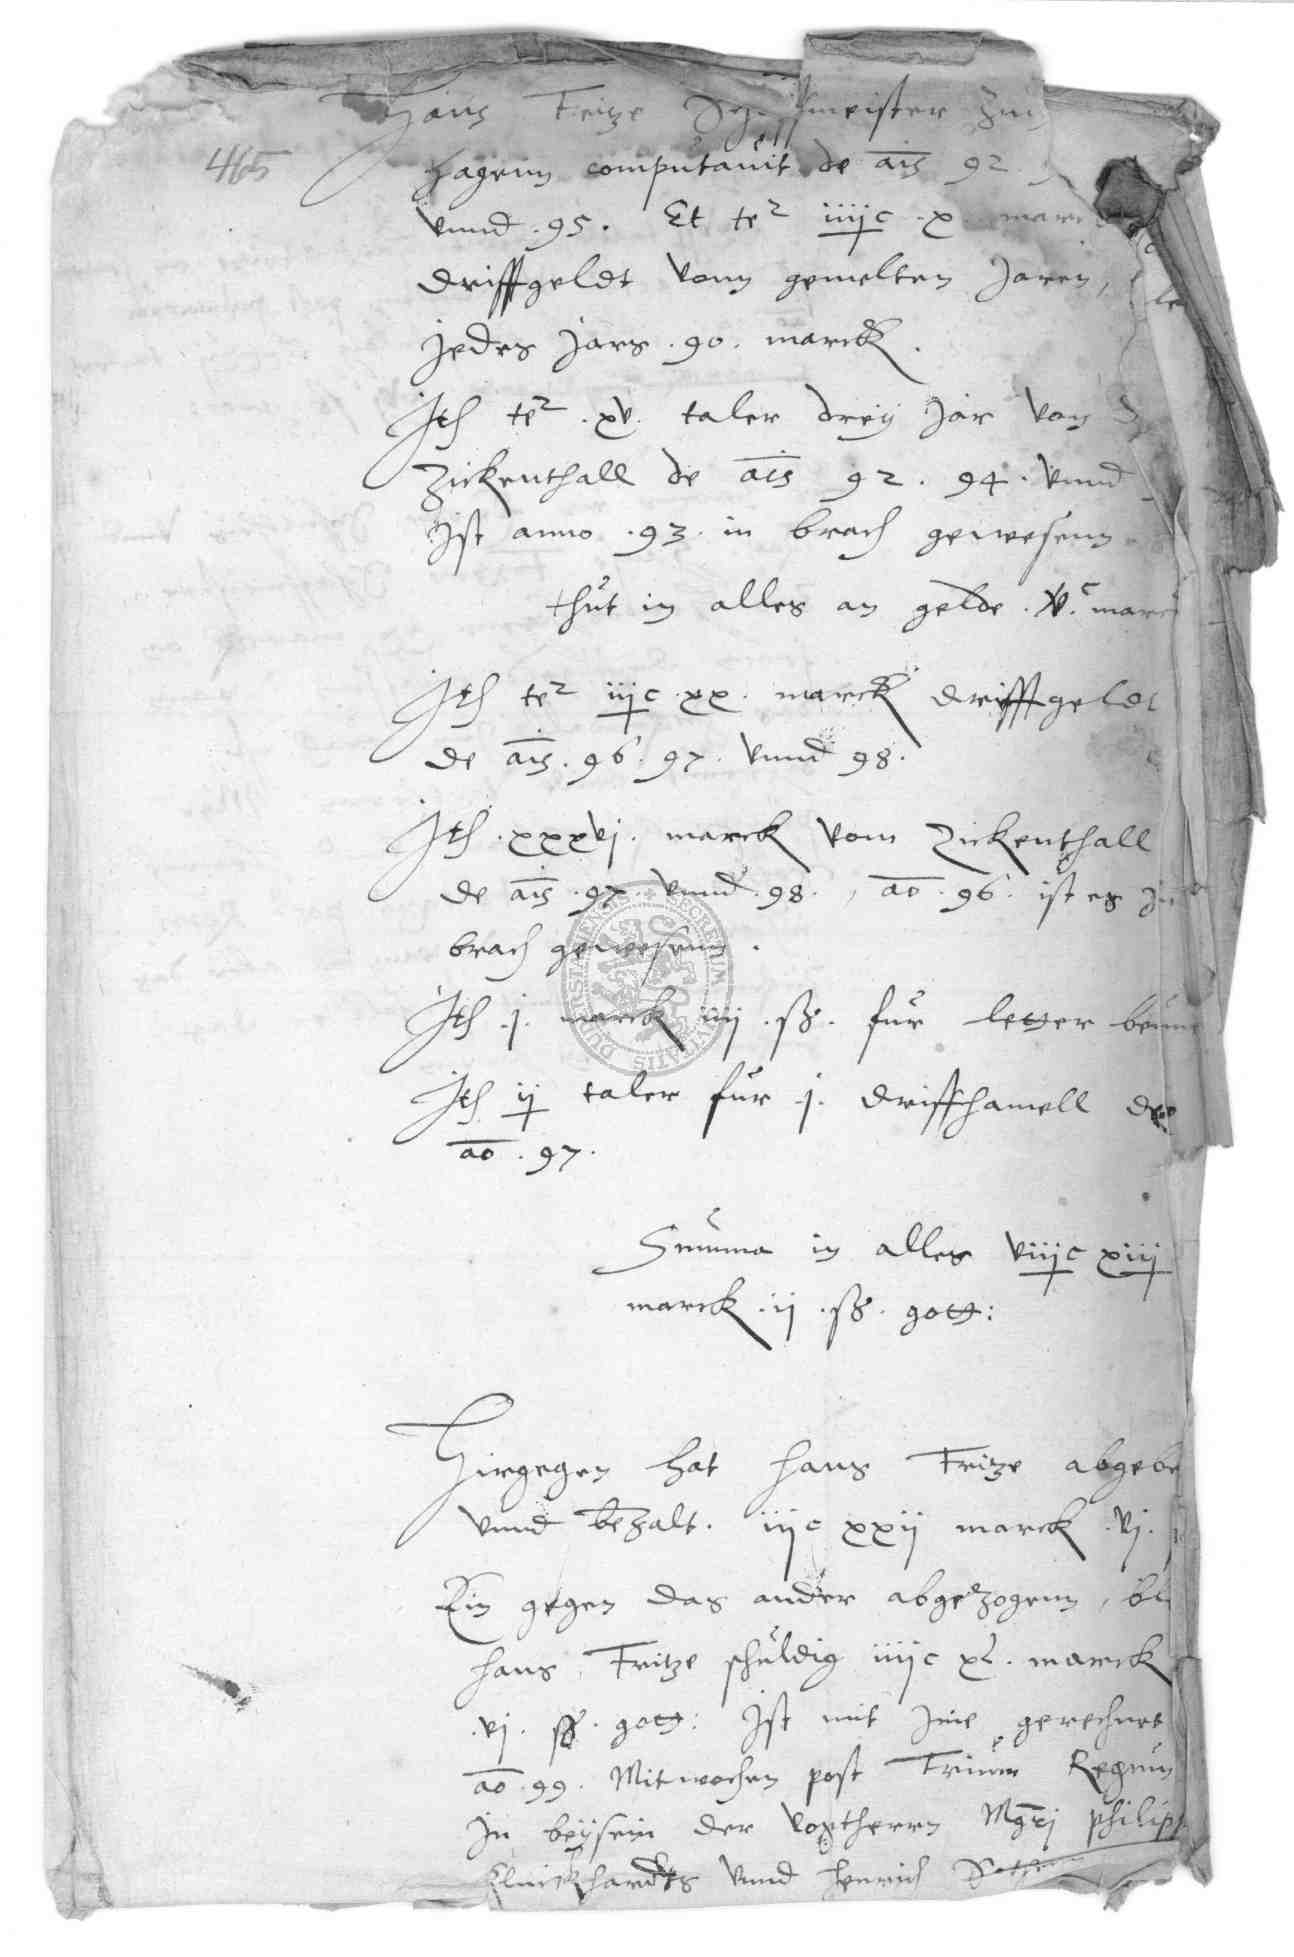 Hans Fritze Sch meister zu
465
hagenn computauit de ais 92
vnnd .95. Et te2 iiijc .x. marc
driffgeldt vonn gemelten Jaren,
Jedes Jars .90. marck.
Ith te2 .xv. taler dreÿ Jar von
Zickenthall de ais 92. 94. vnnd
Ist anno .93. in brach gewesenn
thut in alles an gelde .vc. marc
Ith te2 iijc .xx. marck driffgeldt
de ais. 96. 97. vnnd 98.
Ith .xxxvj. marck vom Zickenthall
de ais .97. vnnd .98. , ao .96. ist es in
brach gewesenn.
Ith .j. marck iiij .ß. für
Ith ij taler für .j. driffhamell de
ao .97.
Summa in alles viijc xiij
marck .ij .ß. gott:
Hirgegen hat hans Fritze abgebe
vnnd bezalt. iijc xxij marck .vj.
Ein gegen das ander abgezogenn, bl
hans Fritze schuldig iiijc marck
.vj. ß. gott: Ist mit Ime gerechnet
ao .99. Mitwochen post Trium Regum
In beÿsein der voxtherrn Mgri philip
vnnd Henrich
SECRETUM CIVITATIS DUDERSTATENSIS